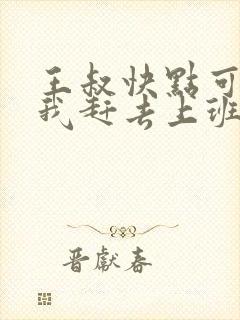 王叔快點可
我赶去上班
晋獻春